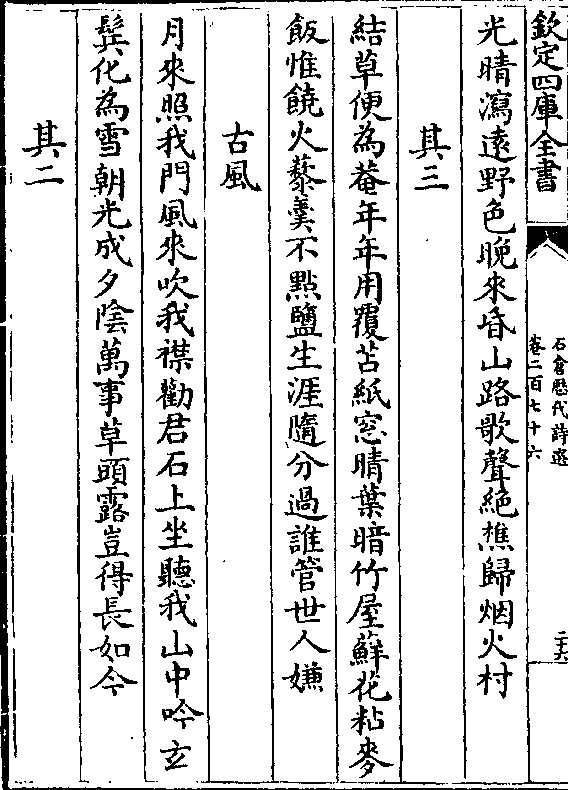 欽定四庫全書
石倉歷代詩選
卷二百七十六
二六
光晴瀉遠野色晚來昏山路歌聲絶樵歸烟火村
其三
結草便為菴年年用覆苫紙窓晴葉暗竹屋蘚花粘麥
飯惟饒火藜羮不點鹽生涯隨分過誰管世人嫌
古風
月來照我門風來吹我襟勸君石上坐聽我山中吟玄
鬂化為雪朝光成夕陰萬事草頭露豈得長如今
其二